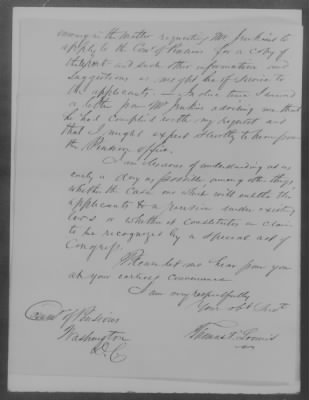 in the matter requesting Mr Jenkins to
apply to the Com of Pensions for a copy of
the report and such other information and
suggestions as might be of service to
the applicants. In due time I received
a letter from Mr Jenkins advising me that
he had complied with my request and
that I might expect shortly to hear from
the Pension office.
I am desirous of understanding at as
early a day as possible, among other things,
whether the case is one which will entitle the
applicants to a pension under existing
laws or whether it constitutes a claim
to be recognized by a special act of
Congress.
Please let me hear from you
at your earliest convenience
I am very respectfully
Your obt Servt
Thomas
Com of Pensions
Washington
D.C.